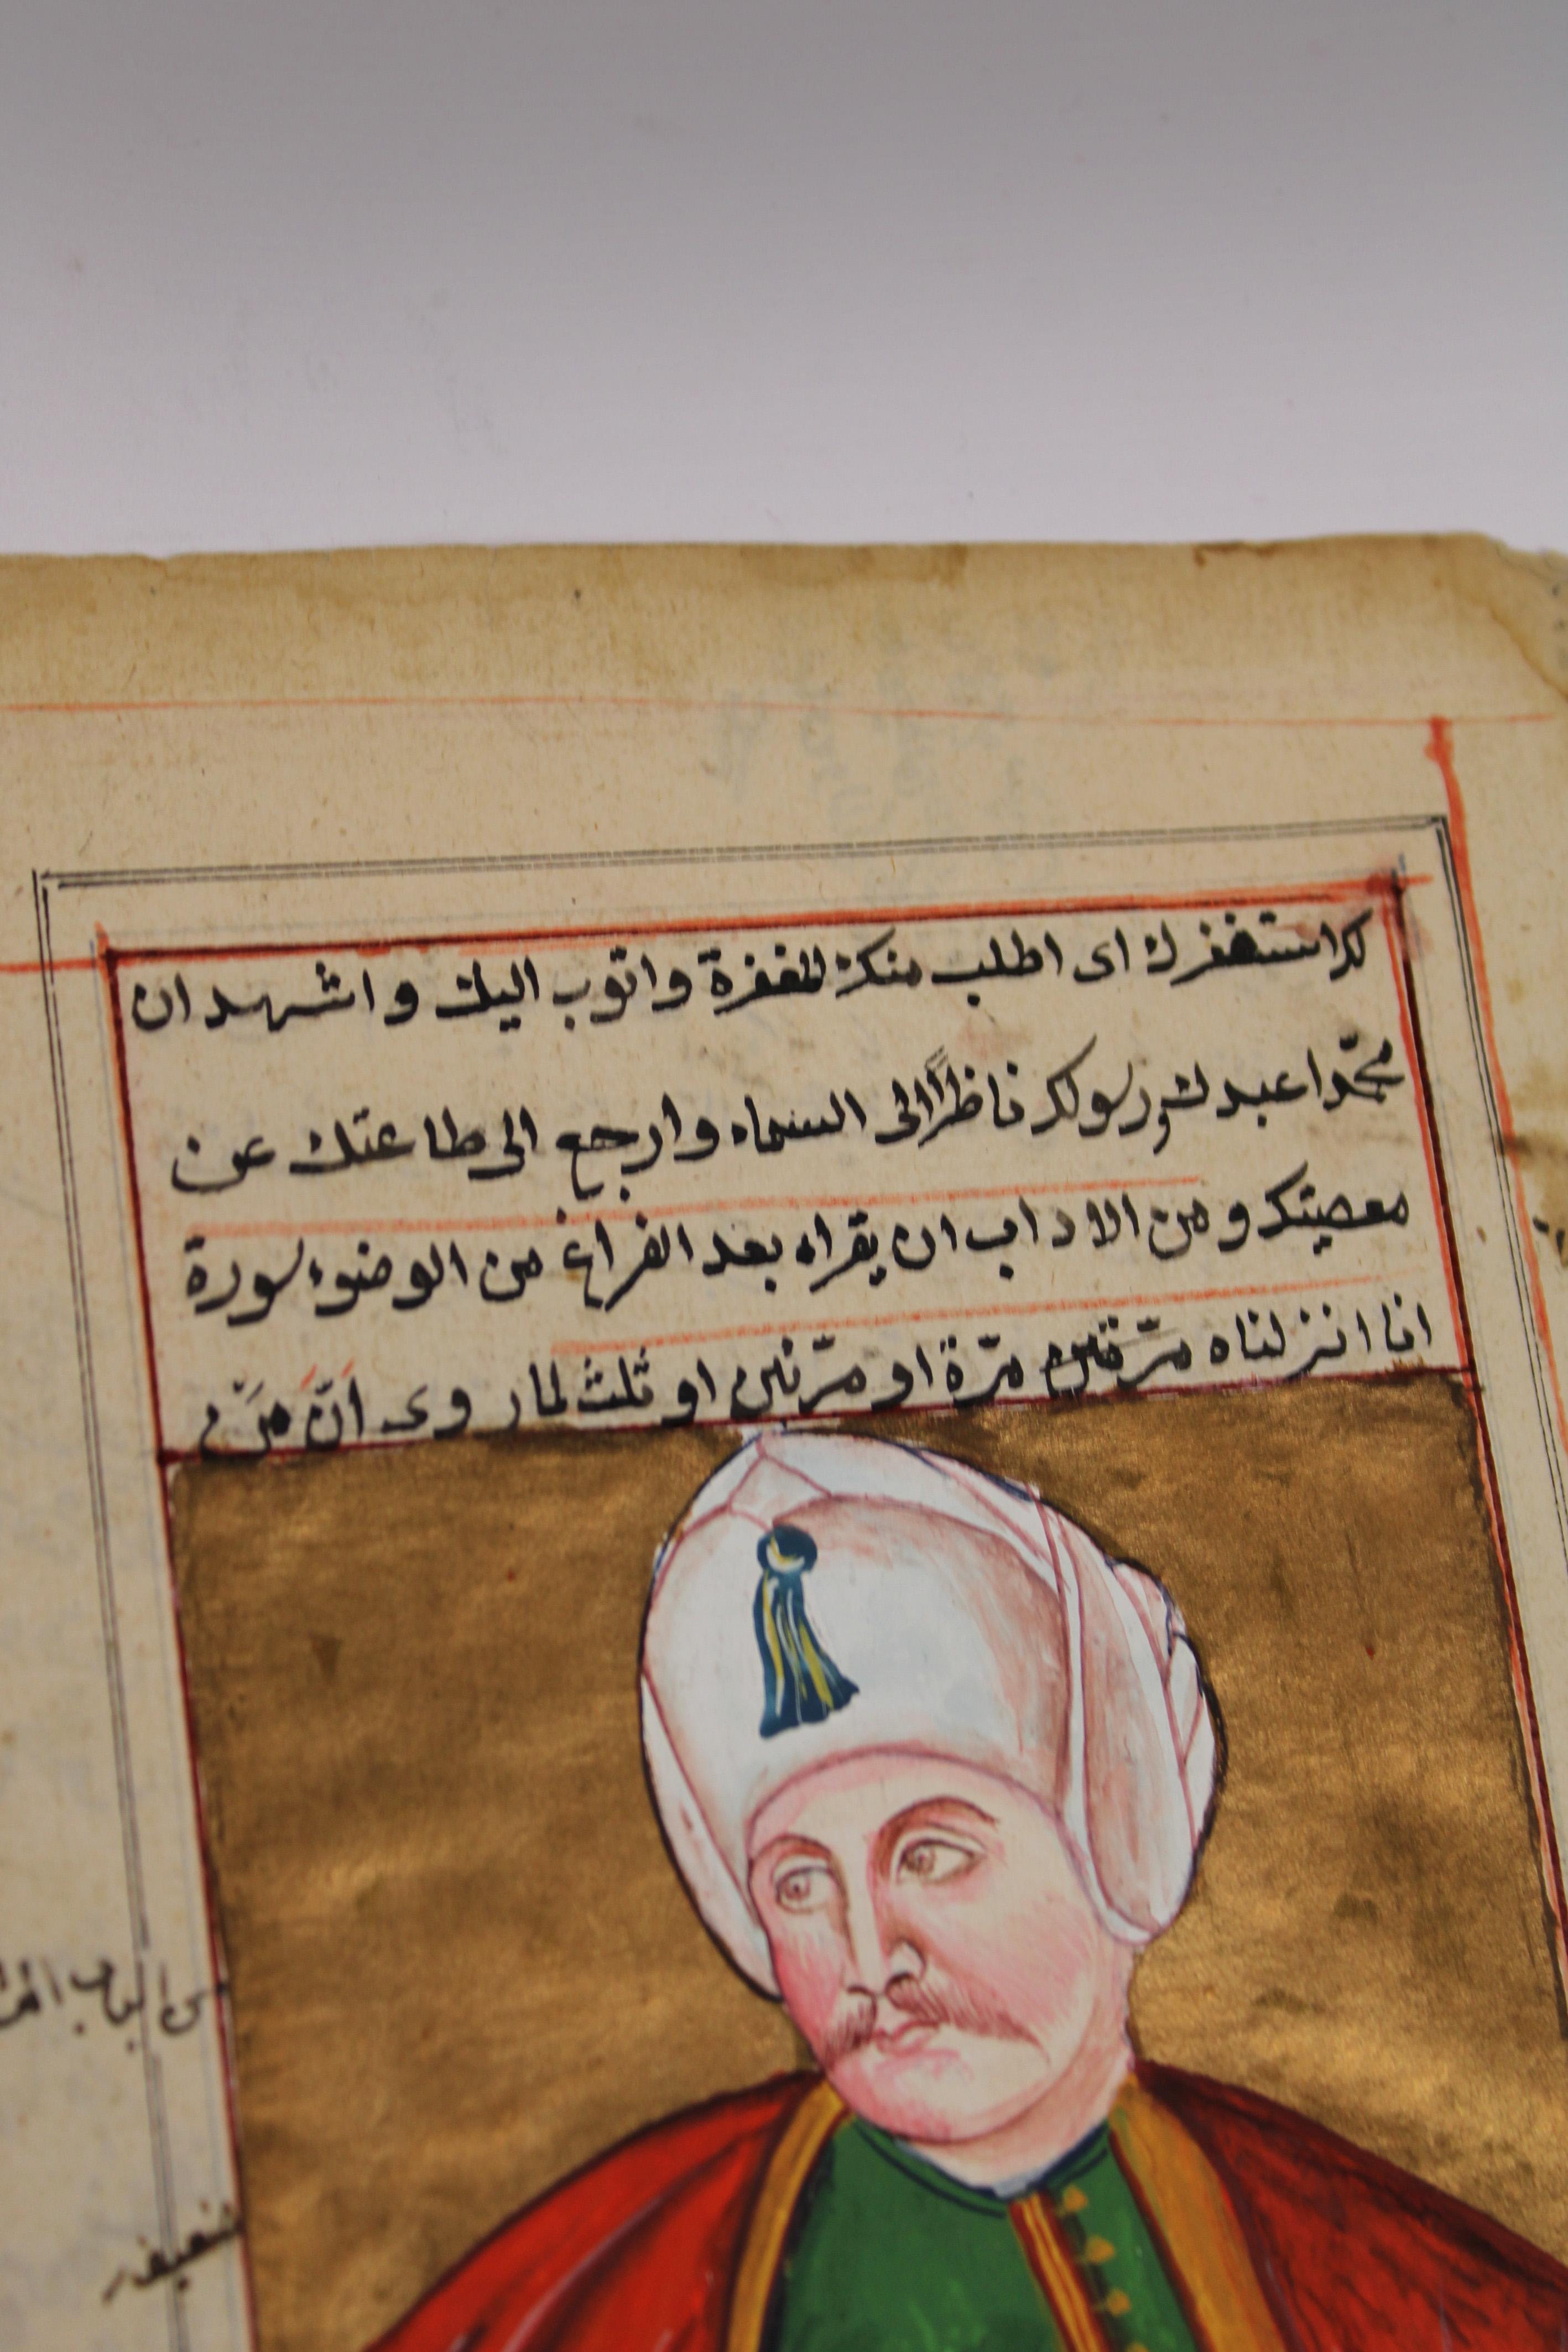 لك استغفرك اى اطلب منك المغفرة واتوب اليك واشهد ان
محمّدا عبدك ورسولك ناظراً الى السماء وارجع الى طاعتك عن
معصيتك ومن الاداب ان يقراء بعد الفراغ من الوضوء سورة
انا انزلناه مرّتين مرّة او مرّتين او ثلث لما روى اَنّ مَن
الباب